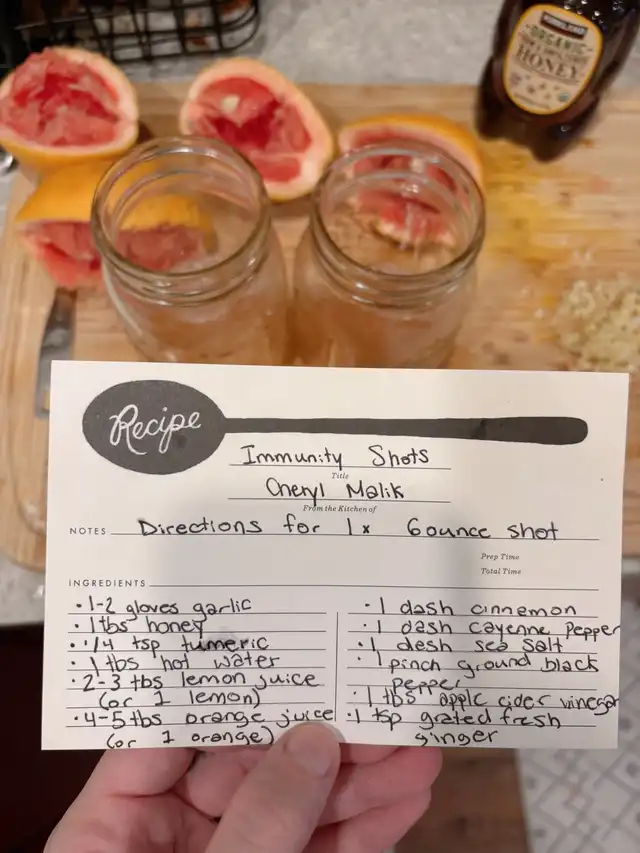 KIRKLAND
ORGANIC
HONEY
Recipe
Immunity Shots
Title
Cheryl Malik
From the Kitchen of
NOTES Directions for 1x 6ounce shot
Prep Time
Total Time
INGREDIENTS
• 1-2 gloves garlic
• 1 tbs honey
• 1/4 tsp tumeric
• 1 tbs hot water
• 2-3 tbs lemon juice
(or 1 lemon)
• 4-5 tbs orange juice
(or 1 orange)
• 1 dash cinnemon
• 1 dash cayenne Pepper
• 1 desh sea salt
• 1 pinch ground black
pepper
• 1 tbs apple cider vinegar
• 1 tsp grated fresh
ginger